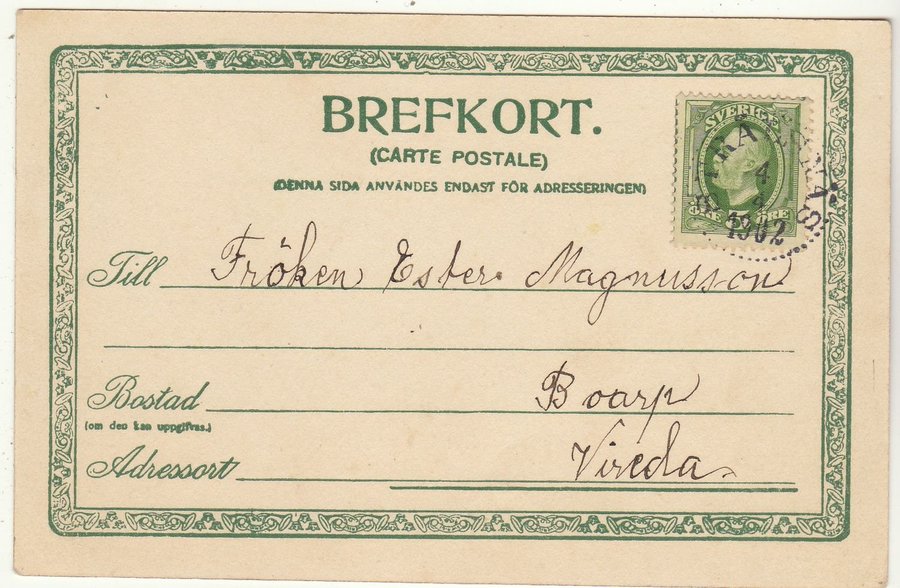 BREFKORT.
(CARTE POSTALE)
(DENNA SIDA ANVÄNDES ENDAST FÖR ADRESSERINGEN)
SVERIGE
4
1902
Till Fröken Ester Magnusson
Bostad Boarp
(om den kan uppgifvas.)
Adressort Vireda